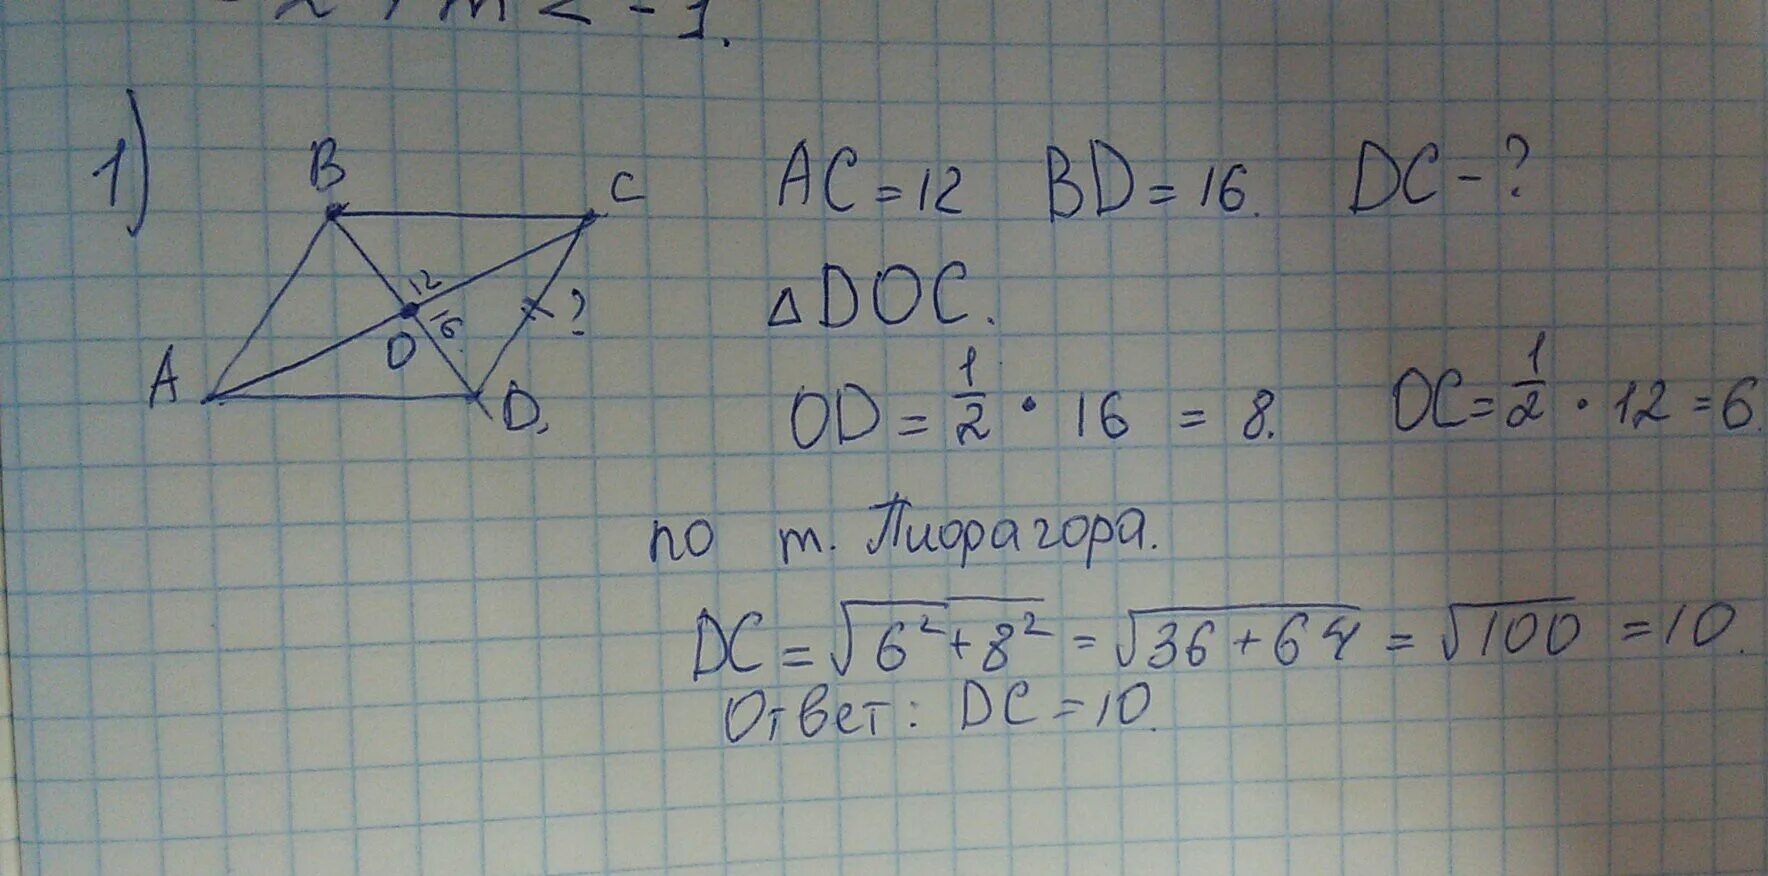 m < -1.
1)
B
C
AC = 12 BD = 16. DC - ?
12
16
?
O
A
D,
△DOC.
OD = 1/2 · 16 = 8. OC = 1/2 · 12 = 6.
по т. Пиорагора.
DC = √6² + 8² = √36 + 64 = √100 = 10.
Ответ: DC = 10.